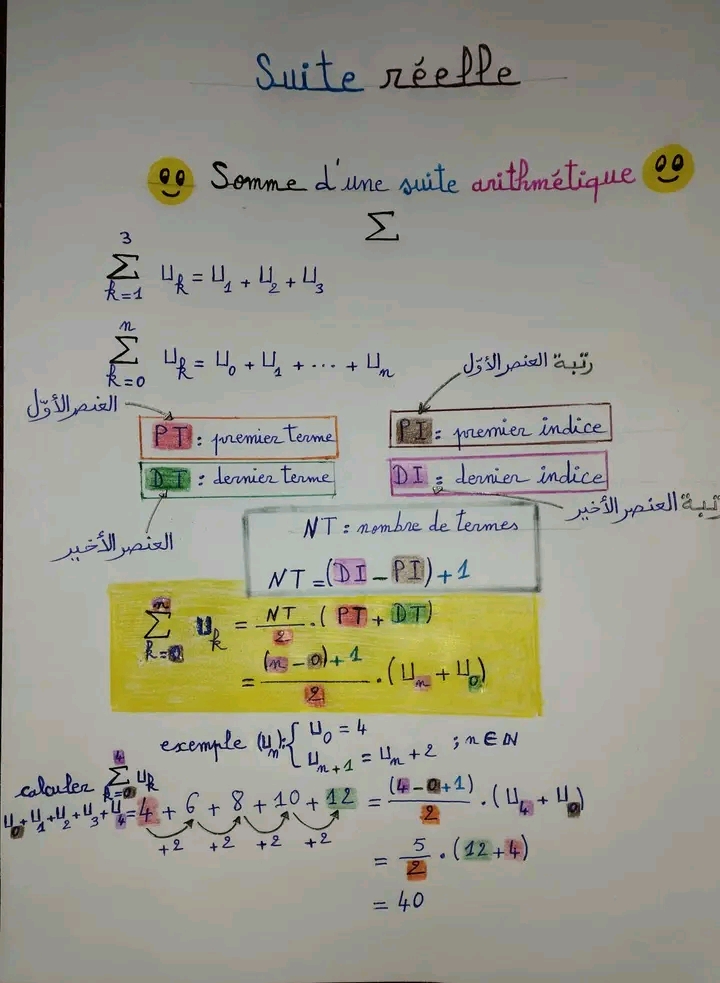 Suite réelle
Somme d'une suite arithmétique
Σ
3
Σ U_k = U_1 + U_2 + U_3
k=1
n
Σ U_k = U_0 + U_1 + ... + U_n
k=0
رتبة العنصر الأوّل
العنصر الأوّل
PT : premier terme
PI : premier indice
DT : dernier terme
DI : dernier indice
رتبة العنصر الأخير
العنصر الأخير
NT : nombre de termes
NT = (DI - PI) + 1
n
Σ U_k = NT/2 . (PT + DT)
k=0
= (n - 0) + 1 / 2 . (U_n + U_0)
exemple (U_n): { U_0 = 4
U_{n+1} = U_n + 2 ; n ∈ N
calculer 4 Σ k=0 U_k
U_0 + U_1 + U_2 + U_3 + U_4 = 4 + 6 + 8 + 10 + 12 = (4 - 0 + 1) / 2 . (U_4 + U_0)
+2 +2 +2 +2
= 5/2 . (12 + 4)
= 40